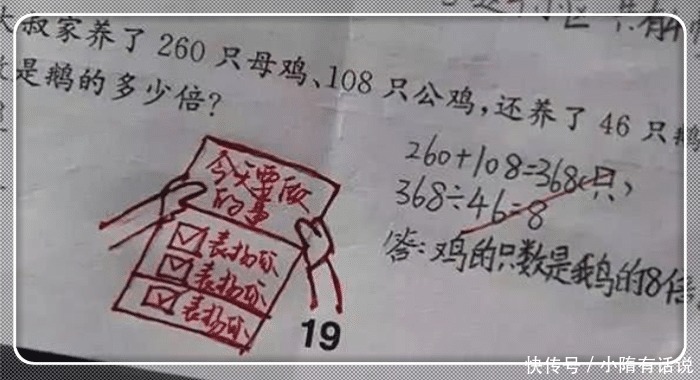 大叔家养了 260 只母鸡、108 只公鸡,还养了 46 只鹅
是鹅的多少倍?
260+108=368(只)
368÷46=8
答:鸡的只数是鹅的8倍
今天要做
的事
表扬你
表扬你
表扬你
19
快传号 / 小隋有话说